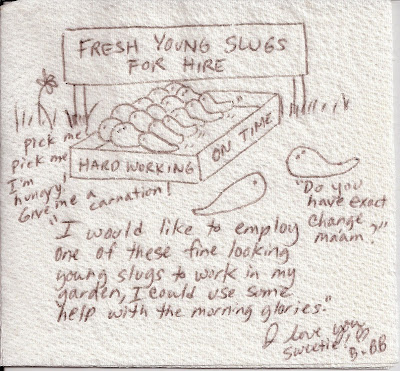 FRESH YOUNG SLUGS
FOR HIRE
Pick me!
Pick me
I'm
hungry!
Give me a carnation!
HARD WORKING
ON TIME
"Do you
have exact
change
ma'am?"
"I would like to employ
one of these fine looking
young slugs to work in my
garden, I could use some
help with the morning glories."
I love you
Sweetie!
B. BB